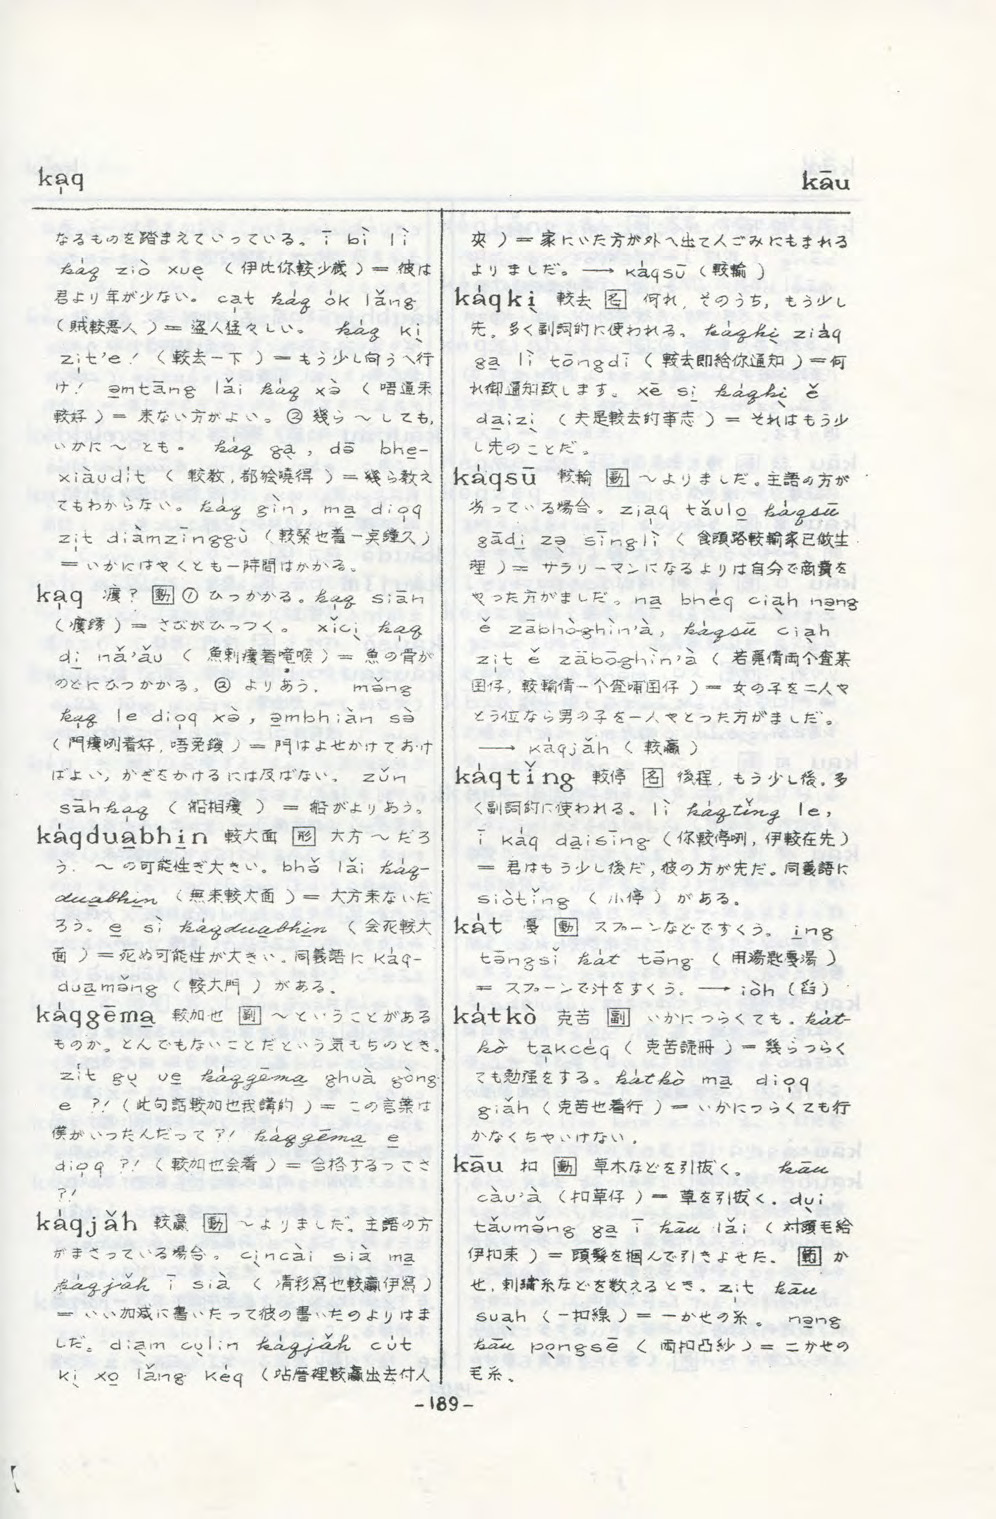 ka̍q
kāu
なるものを踏まえていっている。ī bì lì
ka̍q ziò xuẹ （伊比你較少歲）＝彼は
君より年が少ない。cat ka̍q ók lǎng
（賊較悪人）＝盗人猛々しい。ka̍q kị
zi̍t'e！（較去一下）＝もう少し向うへ行
け！ ə̱mtāng lǎi ka̍q xə̀ （唔通来
較好）＝来ない方がよい。②幾ら～しても,
いかに～とも。ka̍q gạ , dā bhe̱-
xiàudit （較教,都繪曉得）＝幾ら教え
てもわからない。ka̍q gìn, ma̱ diọq
zi̍t diàmzīnggù （較緊也着一点鐘久）
＝いかにはやくとも一時間はかかる。
kaq 瘧？ 動 ①ひっかかる。kaq siān
（瘧銹）＝さびがひっつく。xǐcị kaq
dị nǎ'ǎu （魚刺瘧着嚨喉）＝魚の骨が
のどにひっかかる。②よりあう. məng
kaq le diọq xə̀, ə̱mbhiàn sə̀
（門瘧咧着好,唔免鎖）＝門はよせかけておけ
ばよい,かぎをかけるには及ばない。zǔn
sāhkaq （船相瘧）＝船がよりあう。
káqdua̱bhin 較大面 形 大方～だろ
う. ～の可能性ぎ大きい。bhǒ lǎi káq-
dua̱bhin （無来較大面）＝大方来ないだ
ろう。e̱ sì káqdua̱bhin （会死較大
面）＝死ぬ可能性が大きい。同義語に káq-
dua̱məng （較大門）がある。
káqgēma̱ 較加也 副 ～ということがある
ものか。とんでもないことだという気もちのとき。
zit gụ ue̱ káqgēma̱ ghuà gòng
e ?!（此句話較加也我講的）＝この言葉は
僕がいつたんだって?! káqgēma̱ e̱
diọq ?!（較加也会着）＝合格するってさ
?!
káqjǎh 較贏 動 ～よりました. 主語の方
がまさっている場合。cìncài sià ma̱
káqjǎh ī sià （凊彩寫也較贏伊寫）
＝いい加減に書いたって彼の書いたのよりはま
しだ。diàm cụlìn káqjǎh cút
kị xo̱ lǎng kéq （坫厝裡較贏出去付人
夾）＝家にいた方が外へ出て人ごみにもまれる
よりましだ。⟶ káqsū（較輸）
káqkị 較去 名 何れ,そのうち,もう少し
先,多く副詞的に使われる。káqkị ziàq
ga̱ lì tōngdī （較去即給你通知）＝何
れ御通知致します。xē sị káqkị ě
da̱izị （夫是較去的事志）＝それはもう少
し先のことだ。
káqsū 較輸 動 ～よりましだ。主語の方が
劣っている場合。ziaq tǎulo káqsū
gādị zə sīnglì （食頭路較輸家己做生
理）＝サラリーマンになるよりは自分で商賣を
やった方がましだ。na̱ bhéq ciạh nəng
ě zābhòghìn'à, káqsū ciạh
zi̍t ě zābōghìn'à （若
囝仔,較輸倩一个査哺囝仔）＝女の子を二人や
とう位なら男の子を一人やとった方がましだ。
⟶ káqjǎh （較贏）
káqtǐng 較停 名 後程,もう少し後,多
く副詞的に使われる。lì káqtǐng le,
ī káq da̱isīng （你較停咧,伊較在先）
＝君はもう少し後だ,彼の方が先だ。同義語に
siòtǐng （小停）がある。
kát 戞 動 スプーンなどですくう。ing
tāngsǐ kát tāng （用湯匙戞湯）
＝スプーンで汁をすくう。⟶ iòh（舀）
kátkò 克苦 副 いかにつらくても。kát-
kò ta̱kcéq （克苦読冊）＝幾らつらく
ても勉强をする。kátkò ma̱ diọq
giǎh （克苦也着行）＝いかにつらくても行
かなくちやいけない.
kāu 扣 動 草木などを引抜く。kāu
càu'à （扣草仔）＝草を引抜く. dụi
tǎumə̌ng ga̱ ī kāu lǎi （対頭毛給
伊扣来）＝頭髮を掴んで引きよせた. 範 か
せ,刺繍糸などを数えるとき。zi̍t kāu
suạh （一扣線）＝一かせの糸。nəng
kāu pọngsē （両扣凸紗）＝二かせの
毛糸。
-189-